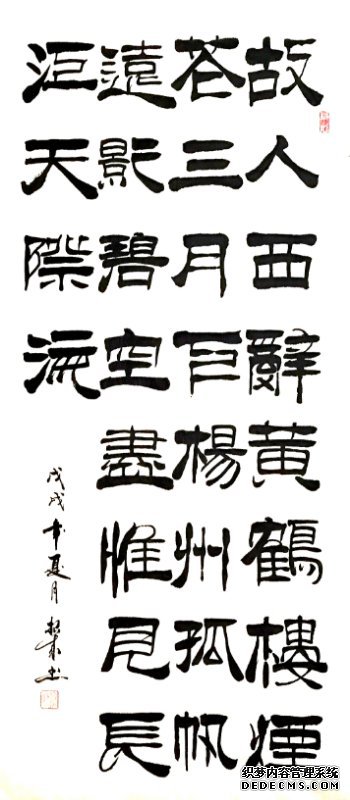 故人西辭黃鶴樓煙
花三月下楊州孤帆
遠影碧空盡惟見長
江天際流
戊戌年夏月
书
织梦内容管理系统
DEDECMS.COM